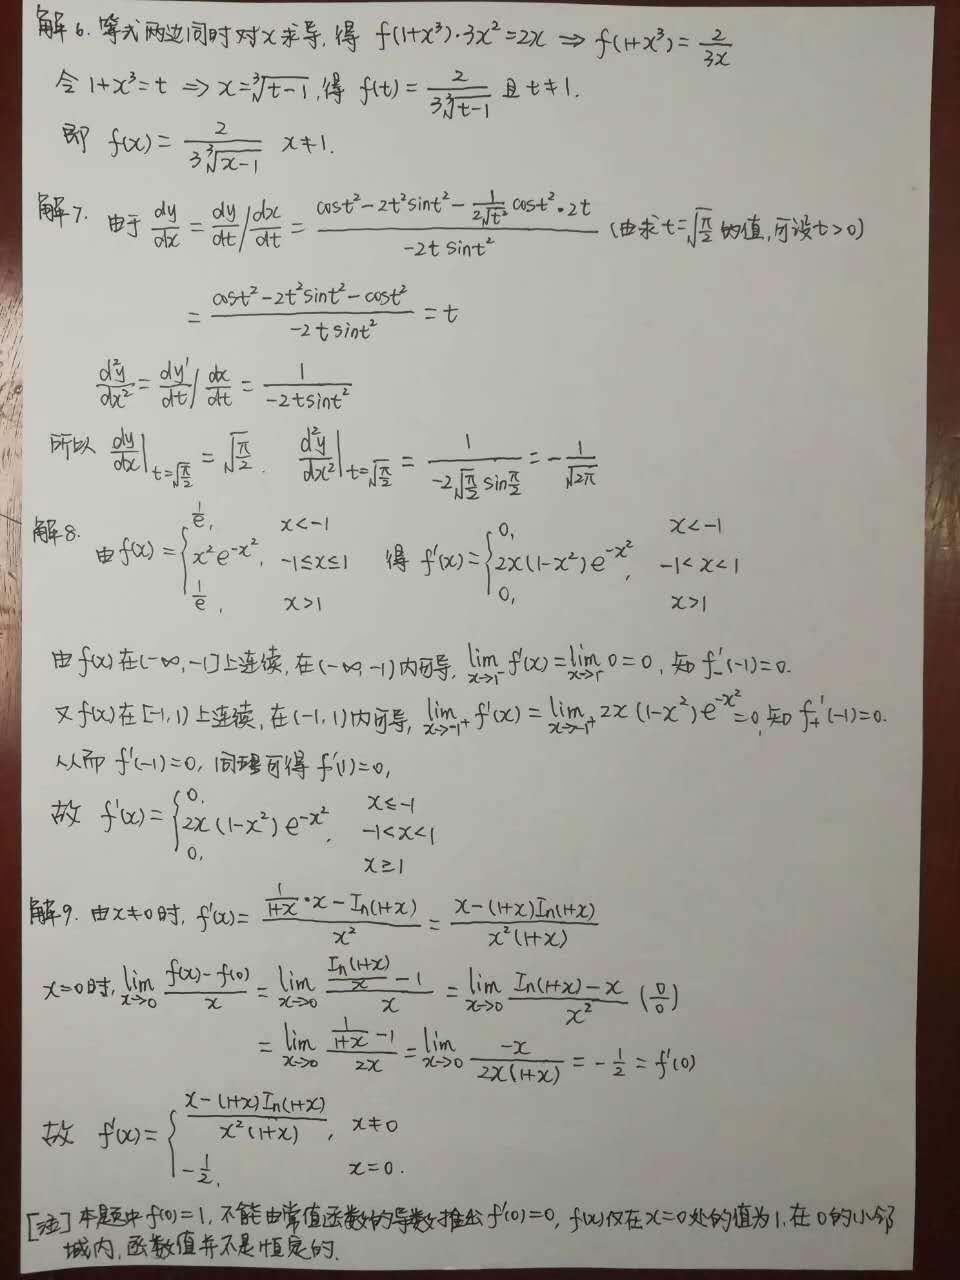 解6. 等式两边同时对x求导, 得 f(1+x³)·3x²=2x ⇒ f(1+x³)=2/(3x)
令 1+x³=t ⇒ x=∛(t-1), 得 f(t)=2/(3∛(t-1)) 且 t≠1.
即 f(x)=2/(3∛(x-1)) x≠1.
解7. 由于 dy/dx = dy/dt / dx/dt = (cost²-2t²sint²-1/(2√t²) cost²·2t)/(-2t sint²) (由求t=√(π/2)的值, 可设t>0)
= (cost²-2t²sint²-cost²)/(-2t sint²) = t
d²y/dx² = dy'/dt / dx/dt = 1/(-2tsint²)
所以 dy/dx|t=√(π/2) = √(π/2). d²y/dx²|t=√(π/2) = 1/(-2√(π/2) sin π/2) = -1/√(2π)
解8. 由f(x)={1/e, x<-1; x²e^(-x²), -1≤x≤1; 1/e, x>1 得 f'(x)={0, x<-1; 2x(1-x²)e^(-x²), -1<x<1; 0, x>1
由f(x)在(-∞,-1]上连续, 在(-∞,-1)内可导, lim x→1⁻ f'(x)=lim x→1⁻ 0=0, 知 f₋'(-1)=0.
又f(x)在[-1,1)上连续, 在(-1,1)内可导, lim x→-1⁺ f'(x)=lim x→-1⁺ 2x(1-x²)e^(-x²)=0, 知 f₊'(-1)=0.
从而 f'(-1)=0, 同理可得 f'(1)=0,
故 f'(x)={0, x≤-1; 2x(1-x²)e^(-x²), -1<x<1; 0, x≥1
解9. 由x≠0时, f'(x)=(1/(1+x)·x-In(1+x))/x² = (x-(1+x)In(1+x))/(x²(1+x))
x=0时, lim x→0 (f(x)-f(0))/x = lim x→0 (In(1+x)/x -1)/x = lim x→0 (In(1+x)-x)/x² (0/0)
= lim x→0 (1/(1+x) -1)/2x = lim x→0 -x/(2x(1+x)) = -1/2 = f'(0)
故 f'(x)={(x-(1+x)In(1+x))/(x²(1+x)), x≠0; -1/2, x=0.
[注] 本题中f(0)=1, 不能由常值函数的导数推出f'(0)=0, f(x)仅在x=0处的值为1, 在0的小邻
域内, 函数值并不是恒定的.